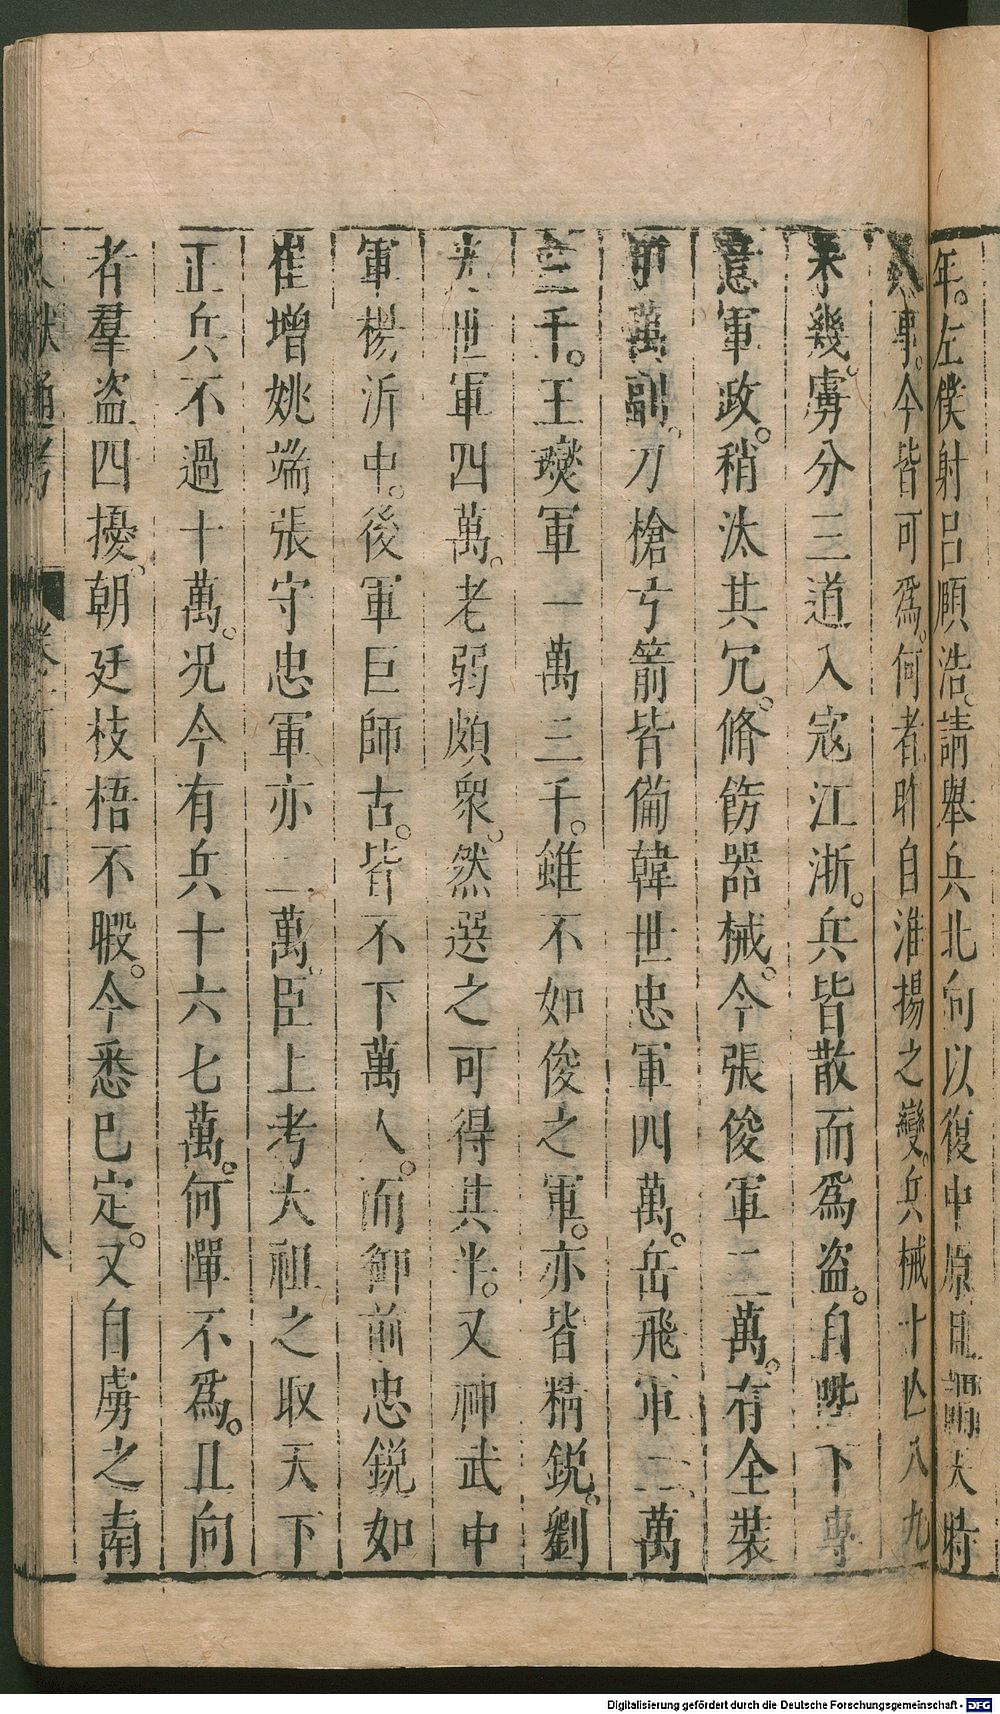 年左僕射呂頤浩請舉兵北向以復中原且謂天時
人事今皆可為何者昨自淮揚之變兵械十亡八九
未幾虜分三道入寇江浙兵皆散而為盜自陛下專
意軍政稍汰其冗脩飭器械今張俊軍三萬有全裝
甲萬副刀槍弓箭皆備韓世忠軍四萬岳飛軍二萬
三千王𤫉軍一萬三千雖不如俊之軍亦皆精銳劉
光世軍四萬老弱頗衆然選之可得其半又神武中
軍楊沂中後軍巨師古皆不下萬人而御前忠銳如
崔增姚端張守忠軍亦二萬臣上考太祖之取天下
正兵不過十萬况今有兵十六七萬何憚不為且向
者羣盜四擾朝廷枝梧不暇今悉已定又自虜之南
文獻通考 卷一百五十四 八
Digitalisierung gefördert durch die Deutsche Forschungsgemeinschaft - DFG